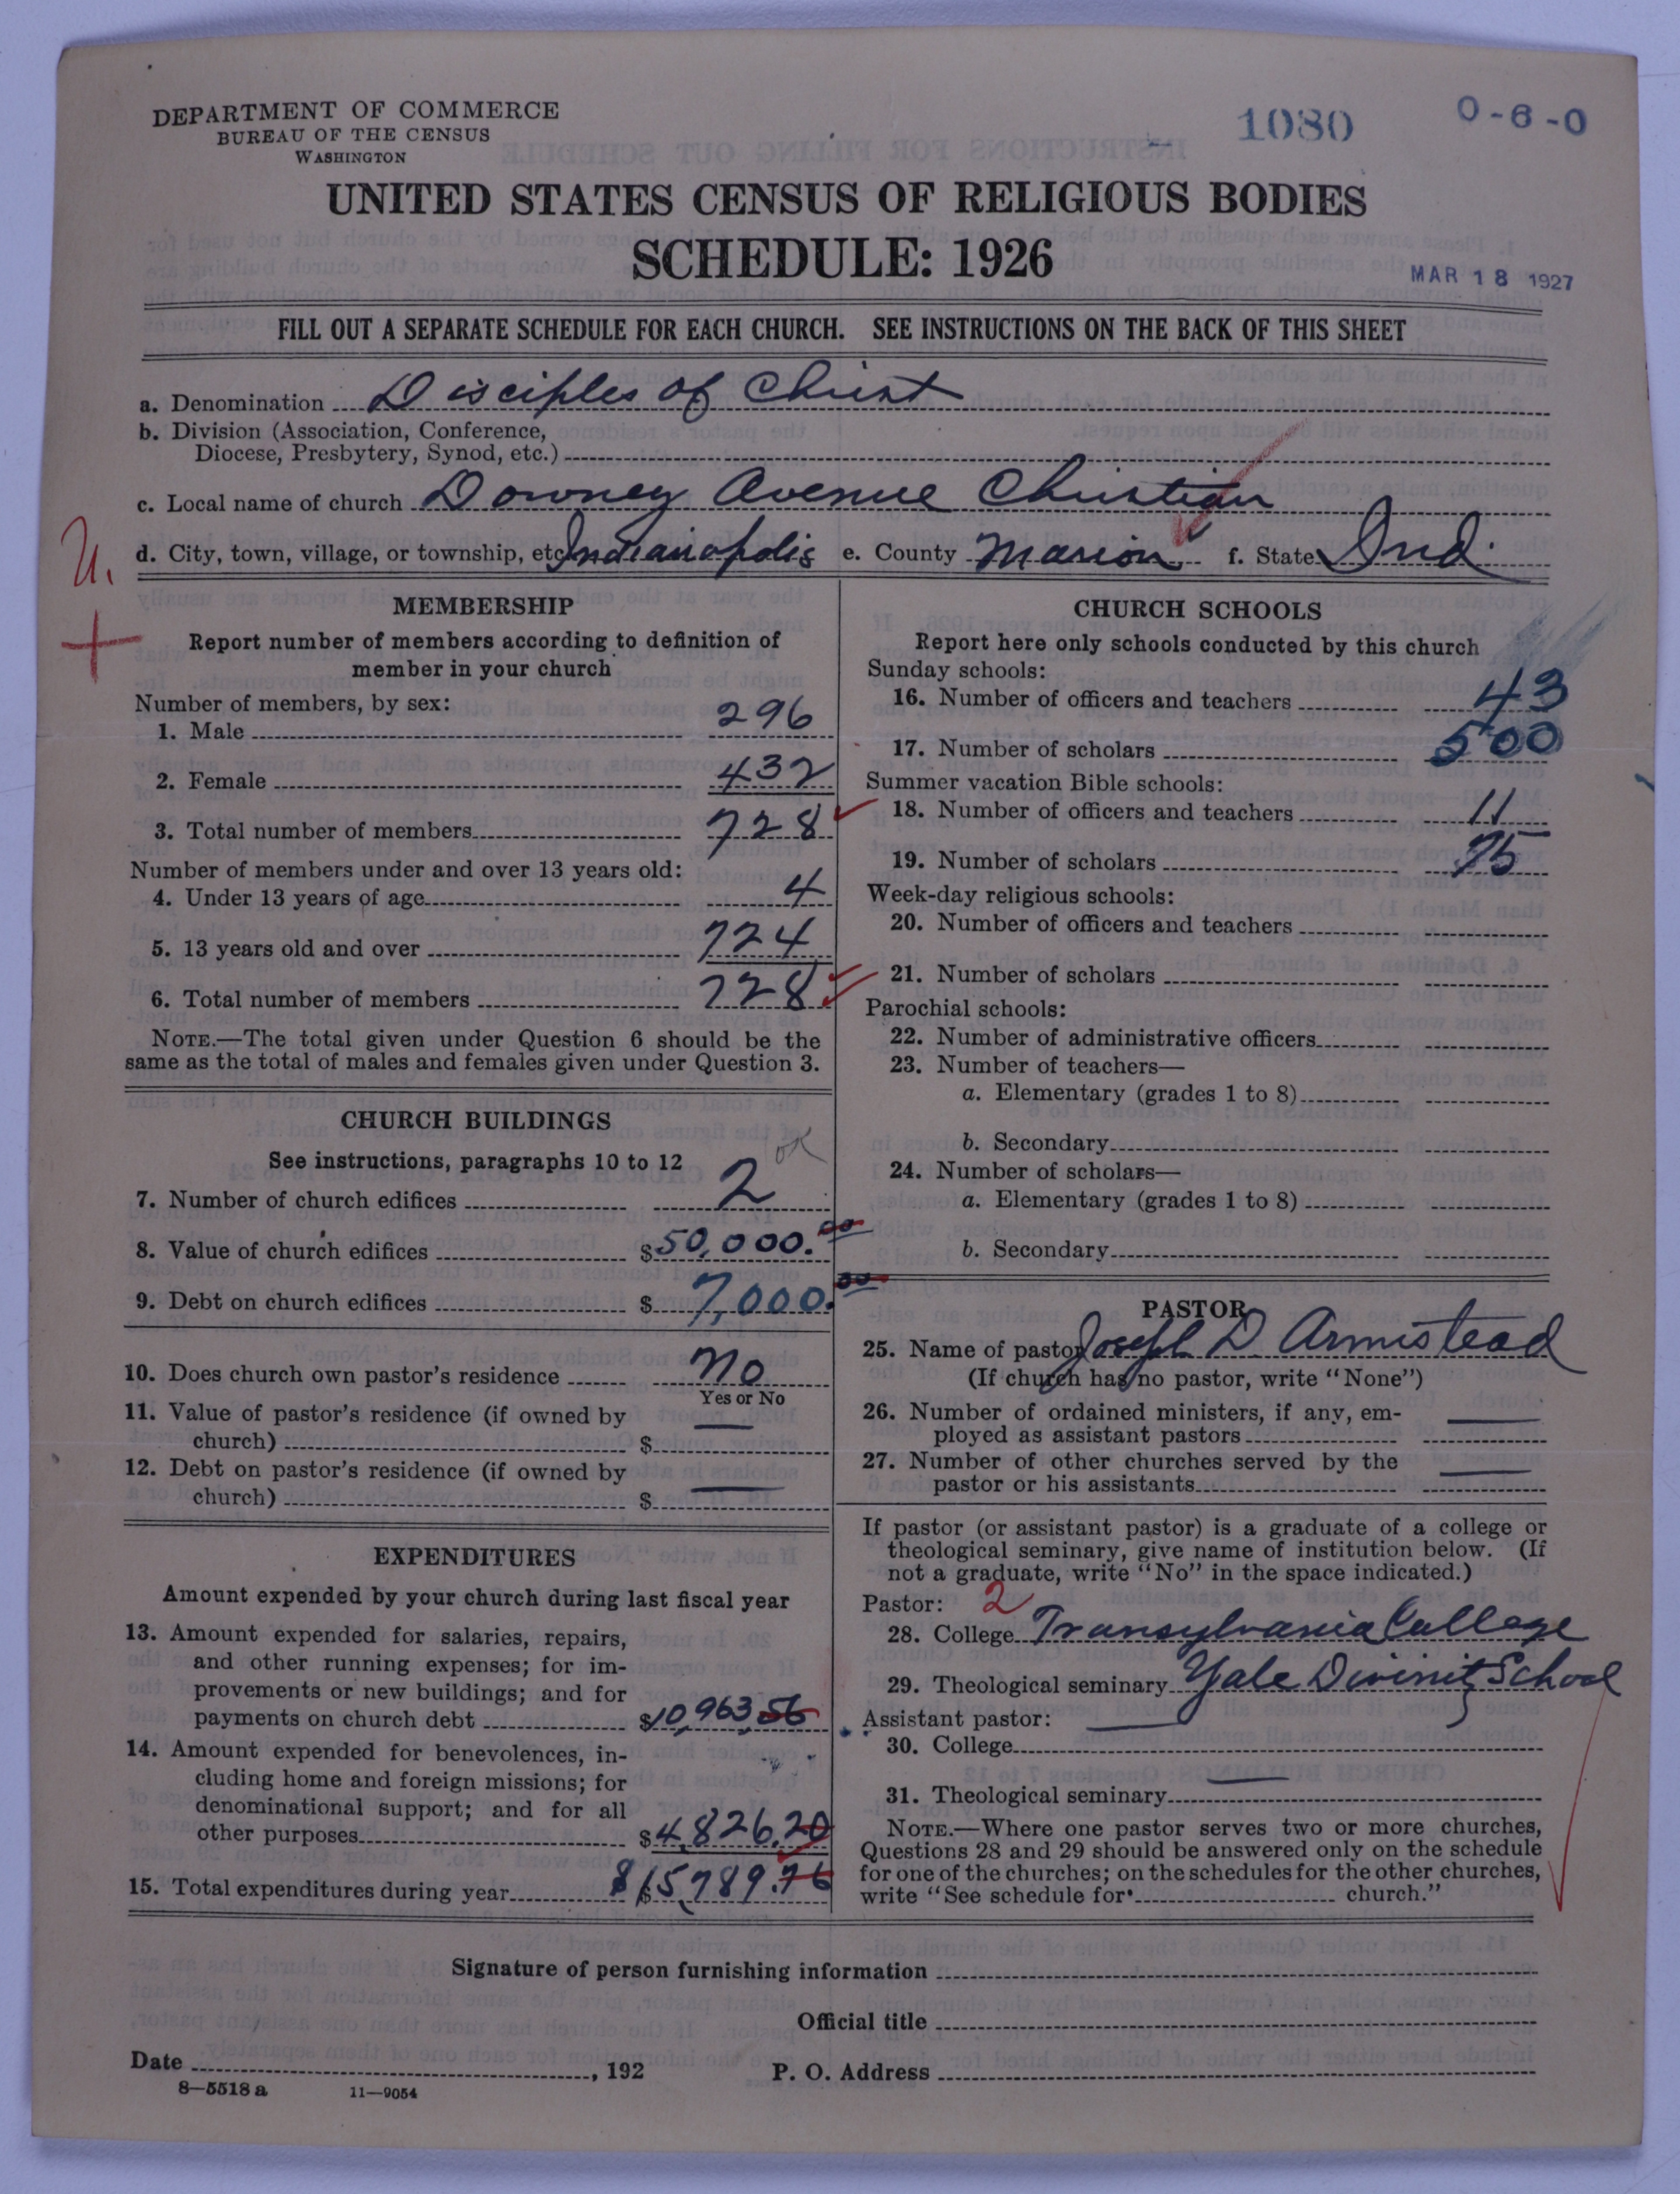 DEPARTMENT OF COMMERCE
BUREAU OF THE CENSUS
WASHINGTON
1080
0-6-0
UNITED STATES CENSUS OF RELIGIOUS BODIES
SCHEDULE: 1926
MAR 18 1927
FILL OUT A SEPARATE SCHEDULE FOR EACH CHURCH. SEE INSTRUCTIONS ON THE BACK OF THIS SHEET
a. Denomination Disciples of Christ
b. Division (Association, Conference,
Diocese, Presbytery, Synod, etc.)
c. Local name of church Downey Avenue Christian
U.
d. City, town, village, or township, etc Indianapolis e. County Marion f. State Ind.
+
MEMBERSHIP
Report number of members according to definition of
member in your church
Number of members, by sex:
1. Male 296
2. Female 432
3. Total number of members 728
Number of members under and over 13 years old:
4. Under 13 years of age 4
5. 13 years old and over 724
6. Total number of members 728
NOTE.—The total given under Question 6 should be the
same as the total of males and females given under Question 3.
CHURCH BUILDINGS
ok
See instructions, paragraphs 10 to 12
7. Number of church edifices 2
8. Value of church edifices $50,000.00
9. Debt on church edifices $ 7,000.00
10. Does church own pastor's residence No
Yes or No
11. Value of pastor's residence (if owned by
church) $ —
12. Debt on pastor's residence (if owned by
church) $ —
EXPENDITURES
Amount expended by your church during last fiscal year
13. Amount expended for salaries, repairs,
and other running expenses; for im-
provements or new buildings; and for
payments on church debt $10,963.56
14. Amount expended for benevolences, in-
cluding home and foreign missions; for
denominational support; and for all
other purposes $4,826.20
15. Total expenditures during year $ $15,789.76
CHURCH SCHOOLS
Report here only schools conducted by this church
Sunday schools:
16. Number of officers and teachers 43
17. Number of scholars 500
Summer vacation Bible schools:
18. Number of officers and teachers 11
19. Number of scholars 75
Week-day religious schools:
20. Number of officers and teachers
21. Number of scholars
Parochial schools:
22. Number of administrative officers
23. Number of teachers—
a. Elementary (grades 1 to 8)
b. Secondary
24. Number of scholars—
a. Elementary (grades 1 to 8)
b. Secondary
PASTOR
25. Name of pastor Joseph D. Armistead
(If church has no pastor, write "None")
26. Number of ordained ministers, if any, em-
ployed as assistant pastors —
27. Number of other churches served by the
pastor or his assistants —
If pastor (or assistant pastor) is a graduate of a college or
theological seminary, give name of institution below. (If
not a graduate, write "No" in the space indicated.)
Pastor: 2
28. College Transylvania College
29. Theological seminary Yale Divinity School
Assistant pastor: —
30. College
31. Theological seminary —
NOTE.—Where one pastor serves two or more churches,
Questions 28 and 29 should be answered only on the schedule
for one of the churches; on the schedules for the other churches,
write "See schedule for church."
Signature of person furnishing information
Official title
Date , 192
P. O. Address
8—5518 a 11—9054